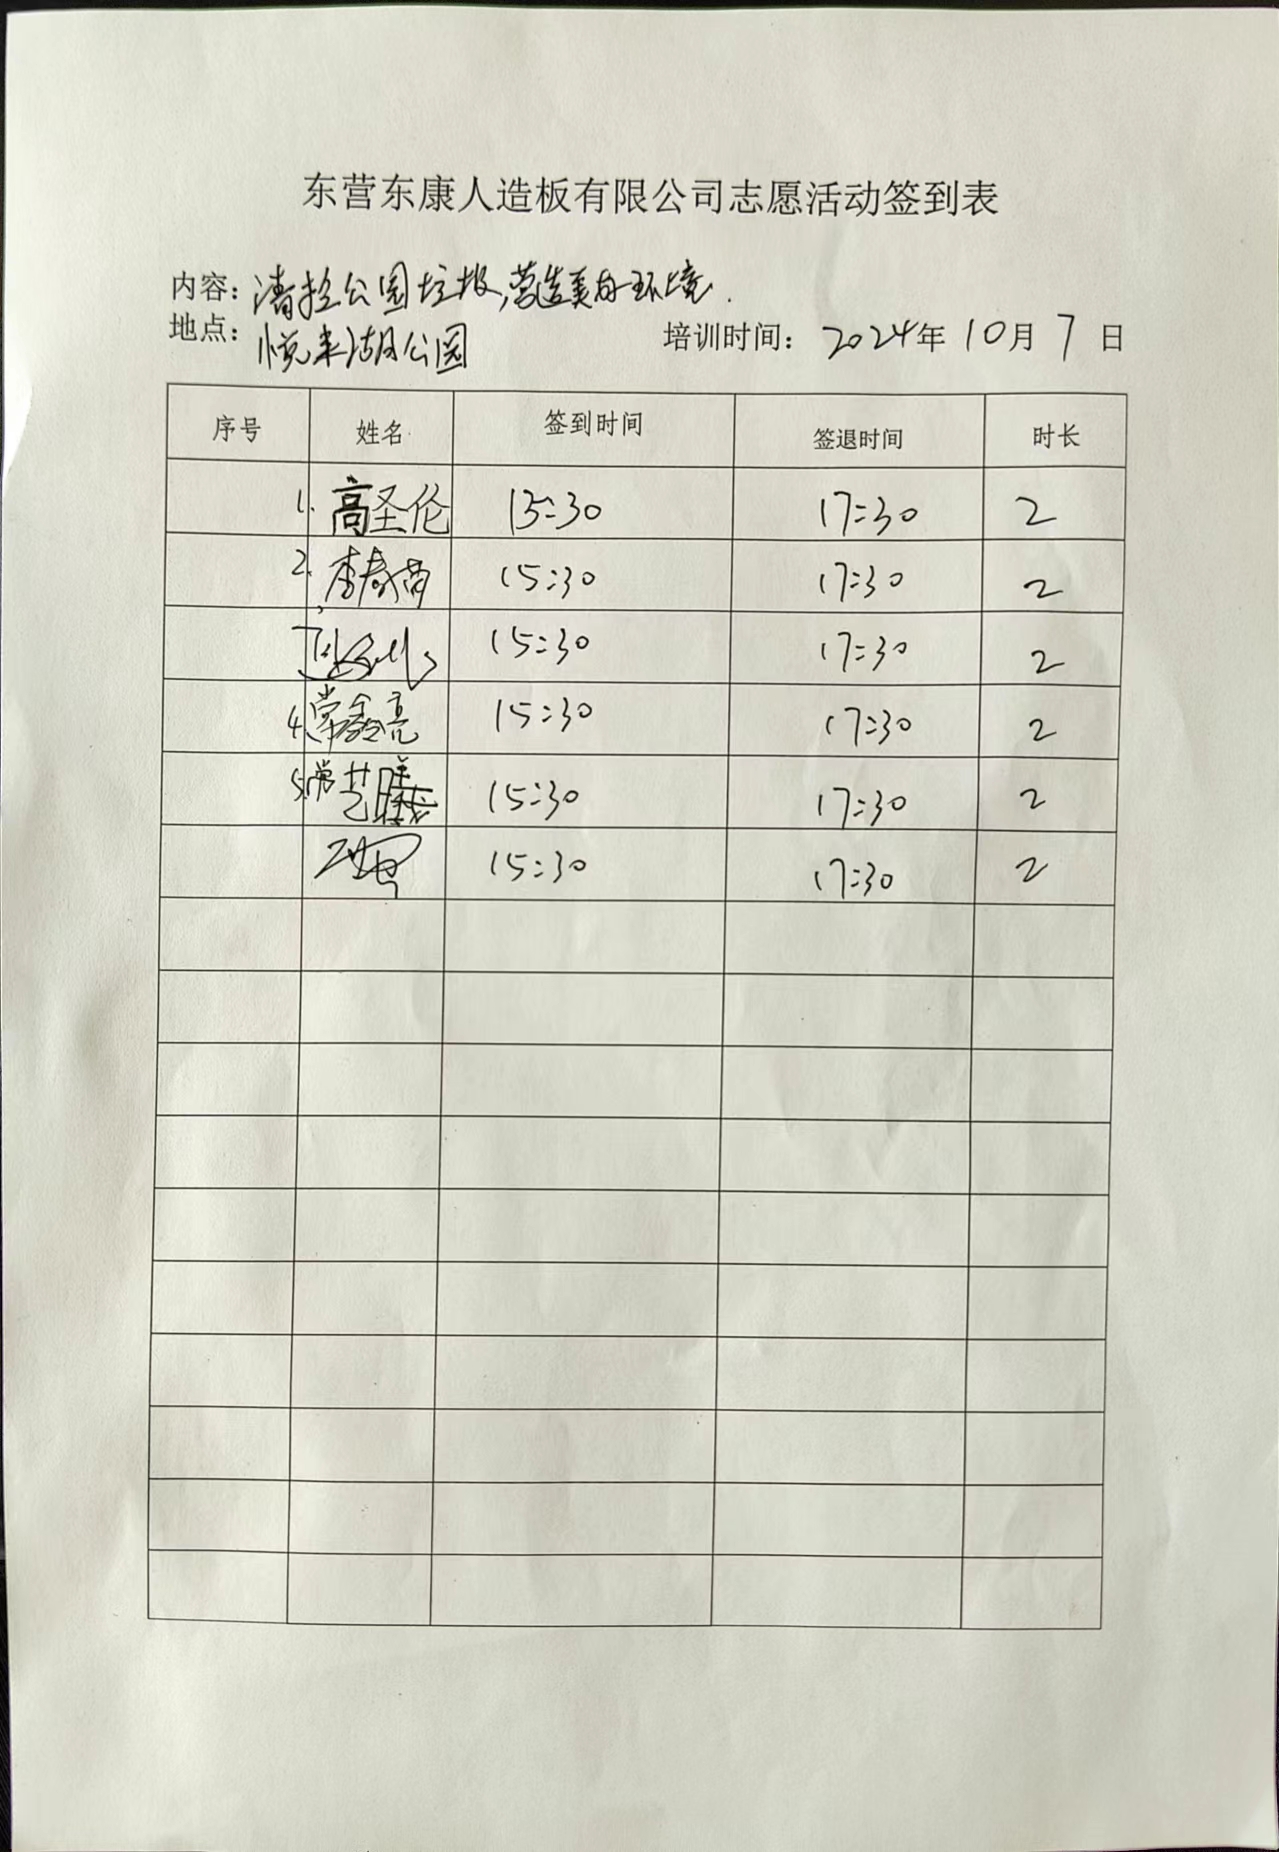 东营东康人造板有限公司志愿活动签到表
内容：清捡公园垃圾,营造美好环境.
地点：悦来湖公园 培训时间：2024年10月7日
序号 姓名 签到时间 签退时间 时长
1. 高圣伦 15:30 17:30 2
2. 李春苗 15:30 17:30 2
15:30 17:30 2
4. 常鑫亮 15:30 17:30 2
5. 常艺曦 15:30 17:30 2
15:30 17:30 2